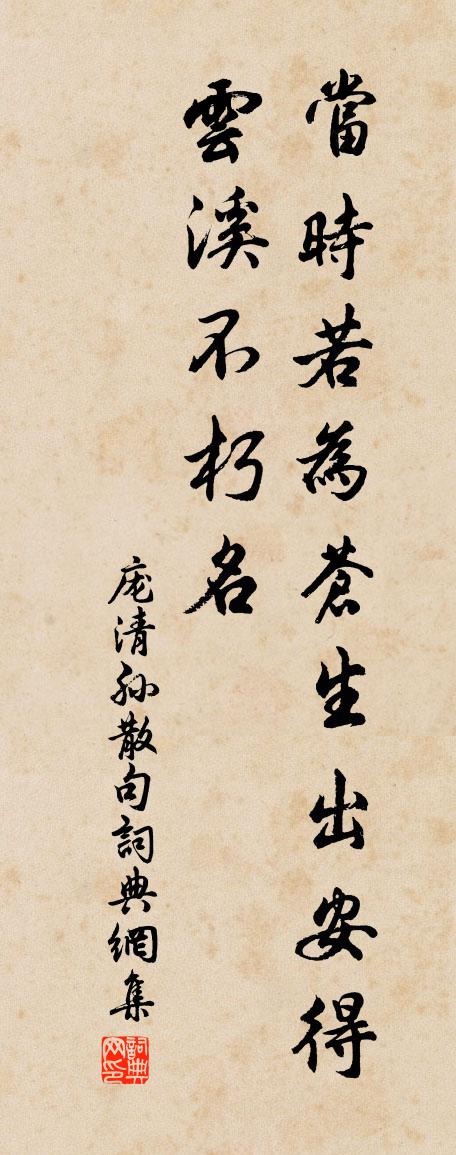 當時若為蒼生出安得
雲溪不朽名
庞清孙散句詞典網集
詞典网印